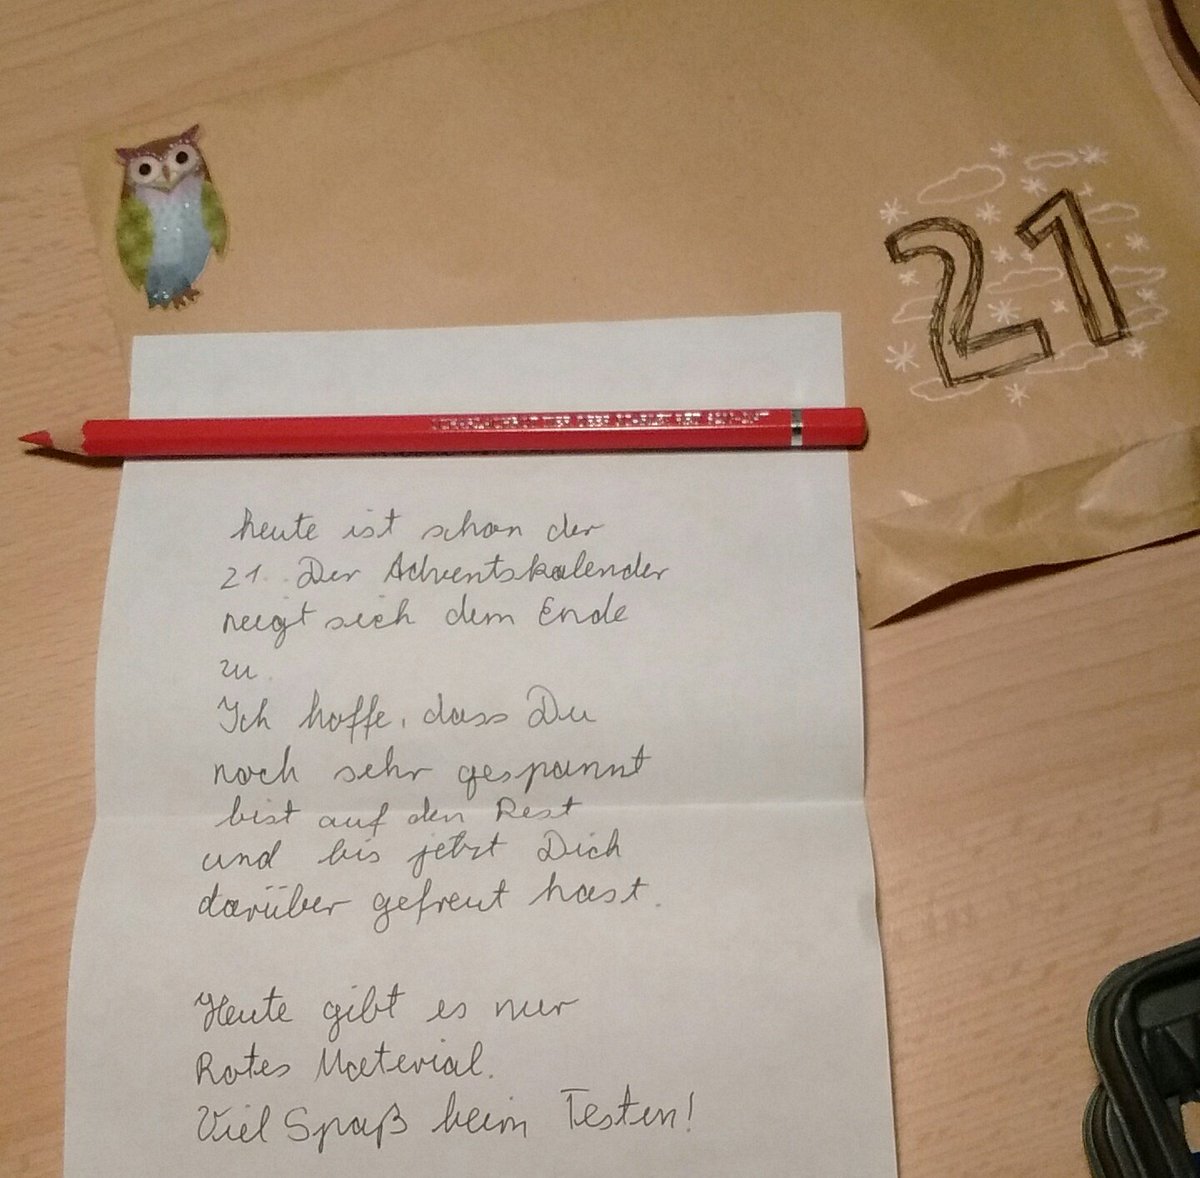 21
heute ist schon der
21. Der Adventskalender
neigt sich dem Ende
zu.
Ich hoffe, dass Du
noch sehr gespannt
bist auf den Rest
und bis jetzt Dich
darüber gefreut hast.
Heute gibt es nur
Rotes Material.
Viel Spaß beim Testen!